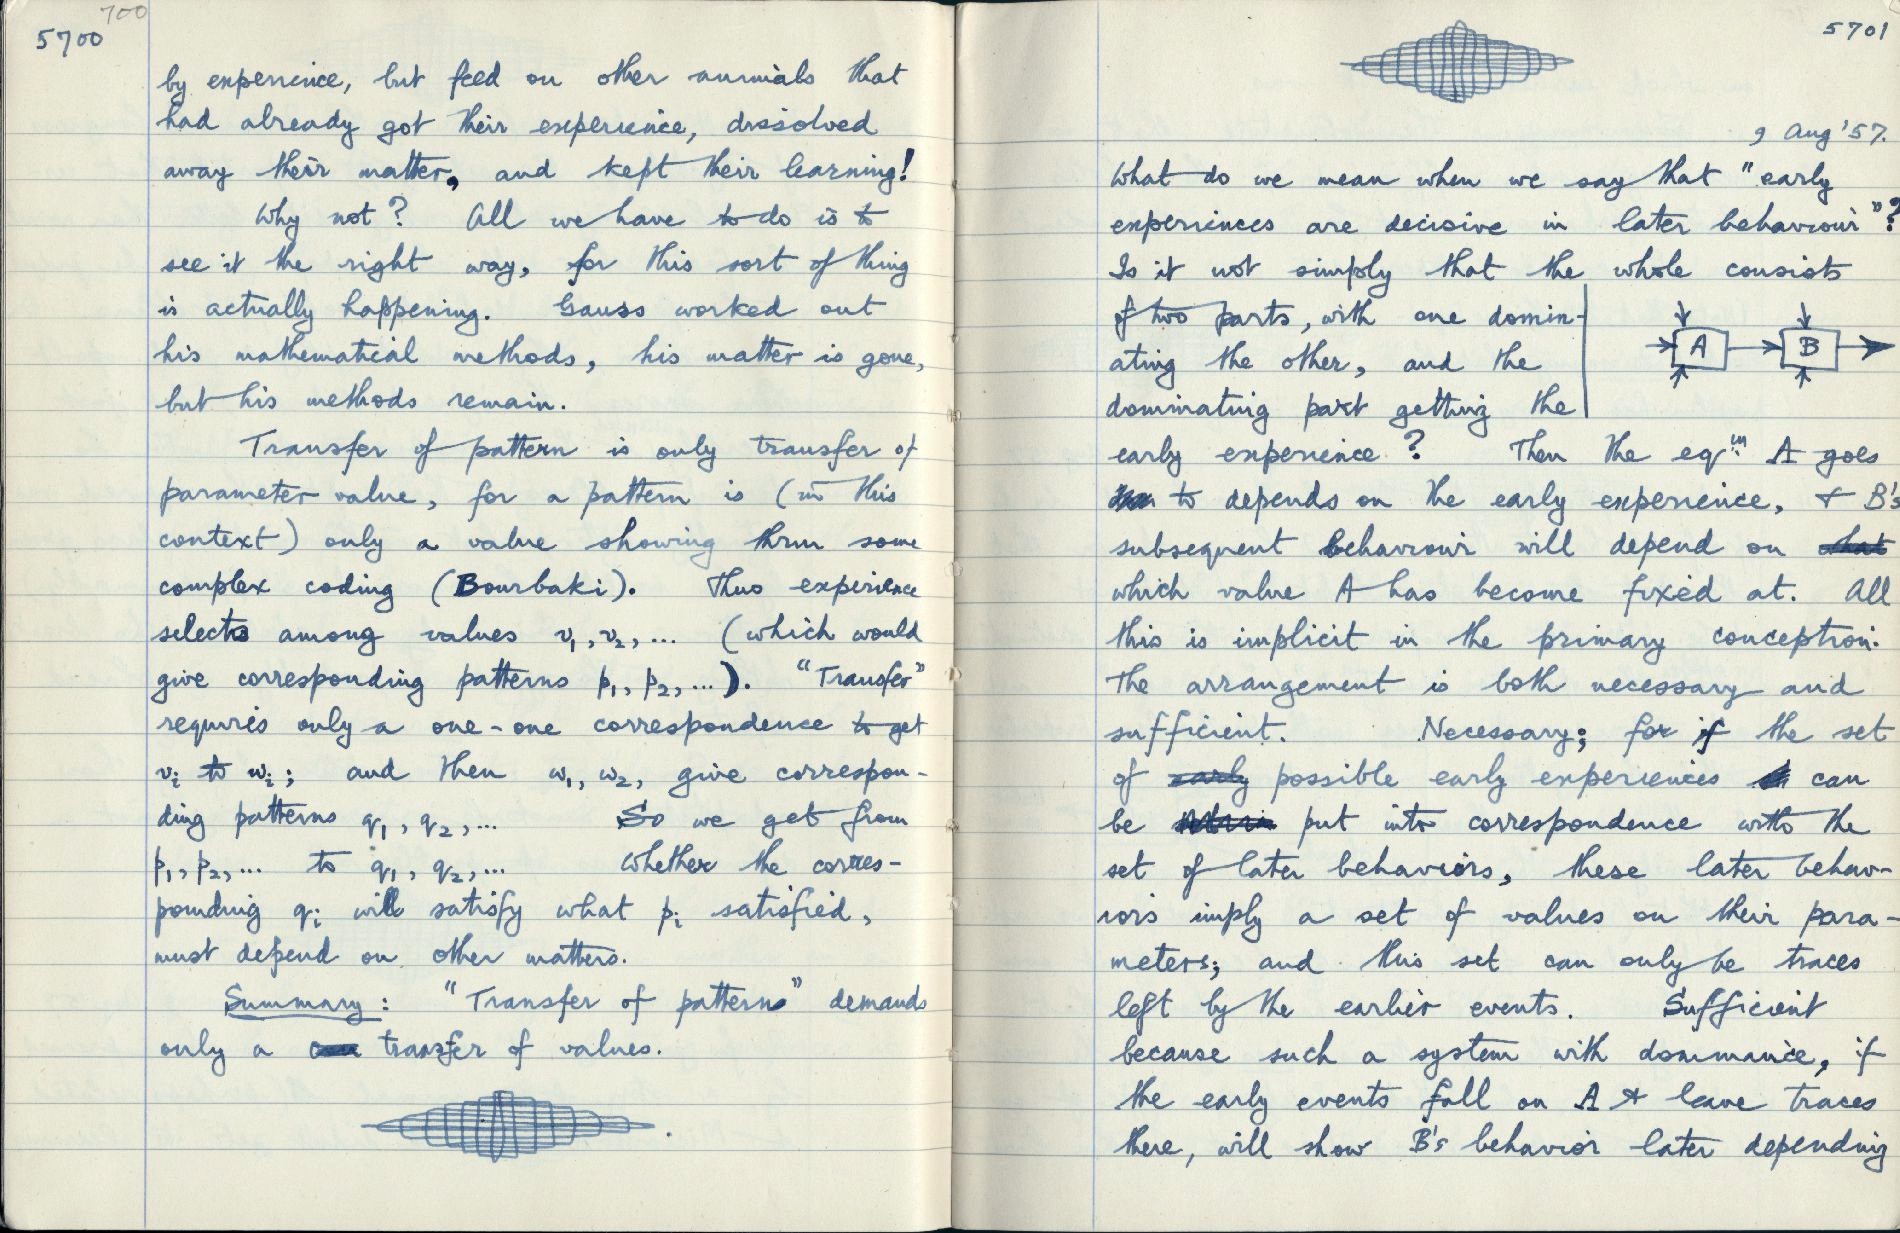 700
5700
by experience, but feed on other animals that
had already got their experience, dissolved
away their matter, and kept their learning!
Why not? All we have to do is to
see it the right way, for this sort of thing
is actually happening. Gauss worked out
his mathematical methods, his matter is gone,
but his methods remain.
Transfer of pattern is only transfer of
parameter value, for a pattern is (in this
context) only a value showing thru some
complex coding (Bourbaki). Thus experience
selects among values v₁, v₂, ... (which would
give corresponding patterns p₁, p₂, ...). "Transfer"
requires only a one-one correspondence to get
vᵢ to wᵢ; and then w₁, w₂, give correspon-
ding patterns q₁, q₂, ... So we get from
p₁, p₂, ... to q₁, q₂, ... Whether the corres-
ponding qᵢ will satisfy what pᵢ satisfied,
must depend on other matters.
Summary: "Transfer of patterns" demands
only a transfer of values.
5701
9 Aug '57.
What do we mean when we say that "early
experiences are decisive in later behaviour"?
Is it not simply that the whole consists
of two parts, with one domin-
ating the other, and the
dominating part getting the
A B
early experience? Then the eqᵐ A goes
to depends on the early experience, + B's
subsequent behaviour will depend on what
which value A has become fixed at. All
this is implicit in the primary conception.
The arrangement is both necessary and
sufficient. Necessary; for if the set
of early possible early experiences can
be put into correspondence with the
set of later behaviors, these later behav-
iors imply a set of values on their para-
meters; and this set can only be traces
left by the earlier events. Sufficient
because such a system with dominance, if
the early events fall on A + leave traces
there, will show B's behavior later depending